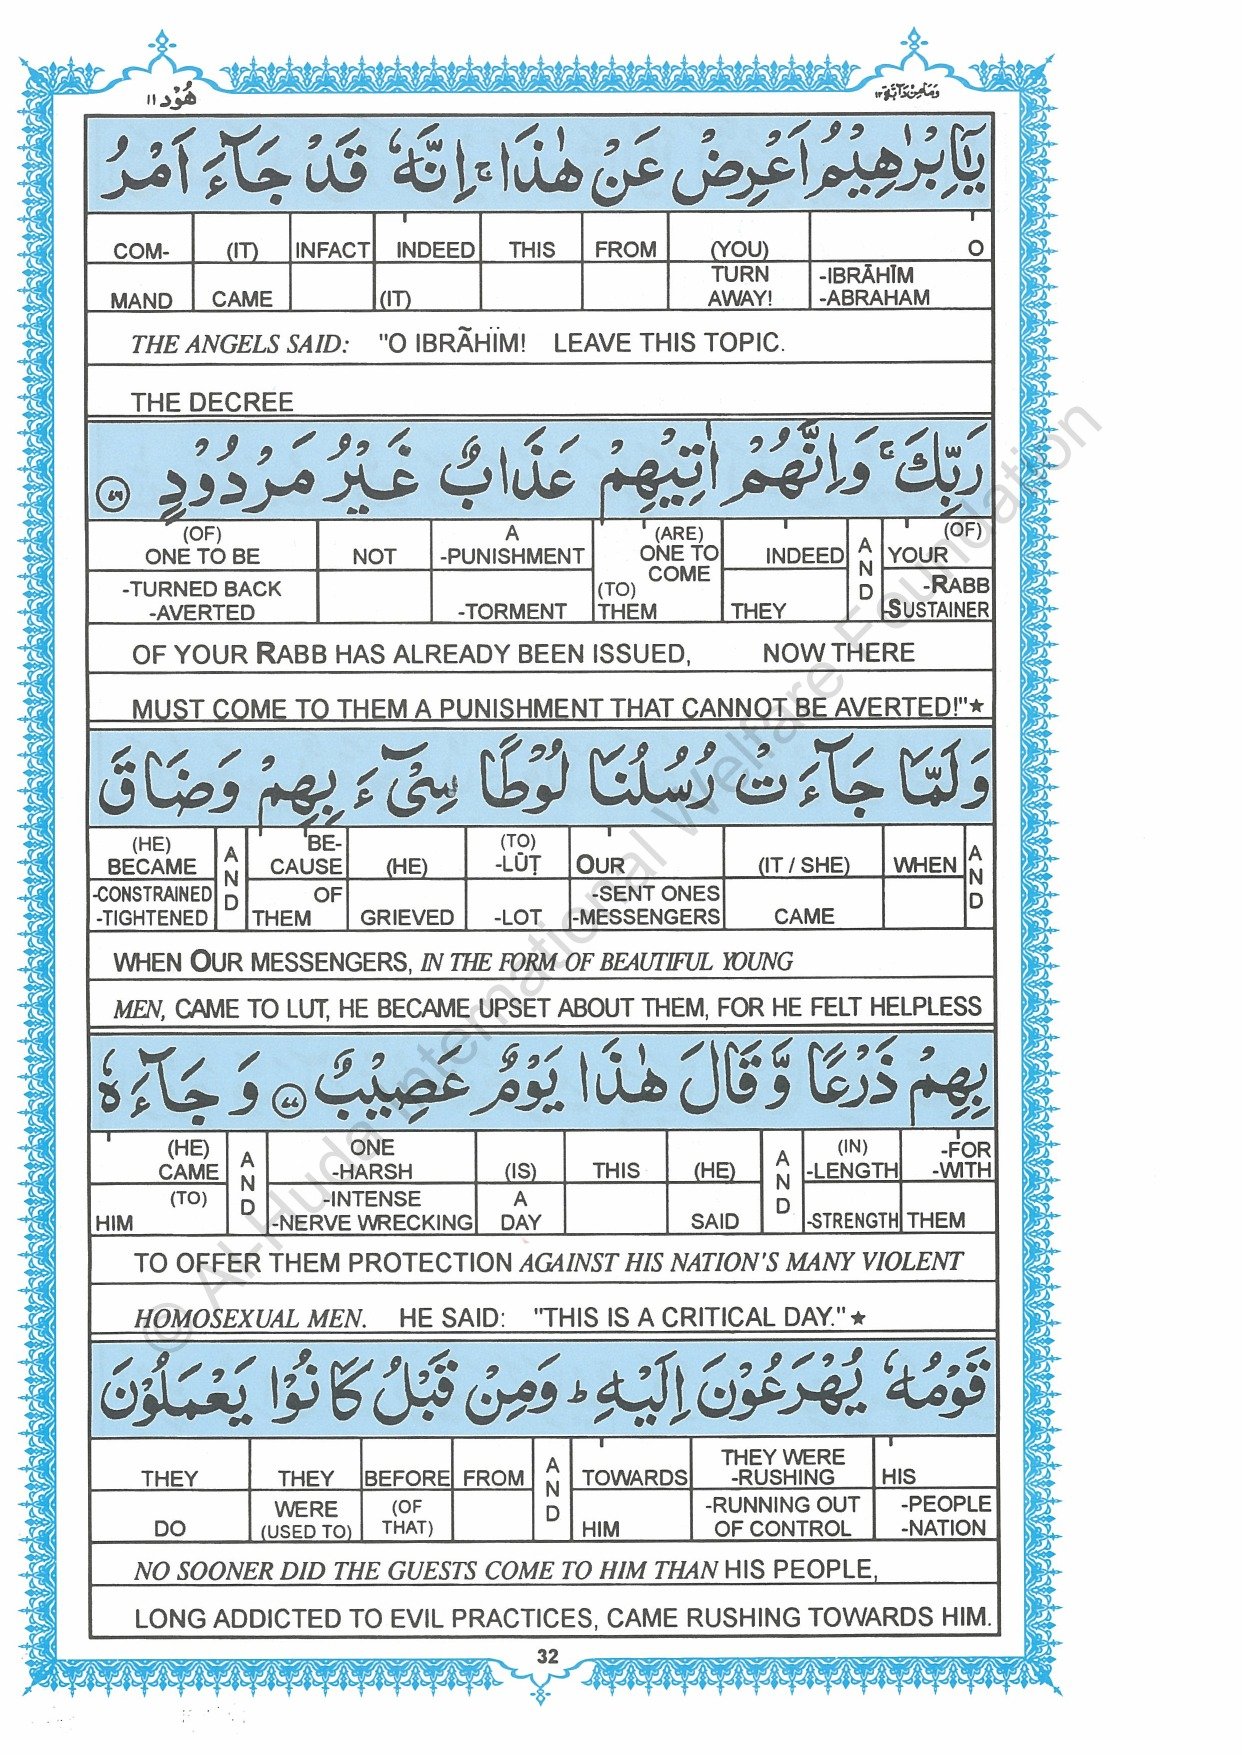 هُوْد ١١
وَمَا مِنْ دَآبَّةٍ ١٢
يٰۤاِبْرٰهِيْمُ اَعْرِضْ عَنْ هٰذَا ۚ اِنَّهٗ قَدْ جَآءَ اَمْرُ
COM- (IT) INFACT INDEED THIS FROM (YOU) O
TURN -IBRĀHĪM
MAND CAME (IT) AWAY! -ABRAHAM
THE ANGELS SAID: "O IBRÃHÏM! LEAVE THIS TOPIC.
THE DECREE
رَبِّكَ ۚ وَاِنَّهُمْ اٰتِيْهِمْ عَذَابٌ غَيْرُ مَرْدُوْدٍ ٧٦
(OF) A (ARE) (OF)
ONE TO BE NOT -PUNISHMENT ONE TO INDEED AND YOUR
COME
-TURNED BACK (TO) -RABB
-AVERTED -TORMENT THEM THEY -SUSTAINER
OF YOUR RABB HAS ALREADY BEEN ISSUED, NOW THERE
MUST COME TO THEM A PUNISHMENT THAT CANNOT BE AVERTED!"★
وَلَمَّا جَآءَتْ رُسُلُنَا لُوْطًا سِىْٓءَ بِهِمْ وَضَاقَ
(HE) BE- (TO)
BECAME AND CAUSE (HE) -LŪṬ OUR (IT / SHE) WHEN AND
-CONSTRAINED OF -SENT ONES
-TIGHTENED THEM GRIEVED -LOT -MESSENGERS CAME
WHEN OUR MESSENGERS, IN THE FORM OF BEAUTIFUL YOUNG
MEN, CAME TO LUT, HE BECAME UPSET ABOUT THEM, FOR HE FELT HELPLESS
بِهِمْ ذَرْعًا وَّقَالَ هٰذَا يَوْمٌ عَصِيْبٌ ٧٧ وَجَآءَهٗ
(HE) ONE (IN) -FOR
CAME AND -HARSH (IS) THIS (HE) AND -LENGTH -WITH
(TO) -INTENSE A
HIM -NERVE WRECKING DAY SAID -STRENGTH THEM
TO OFFER THEM PROTECTION AGAINST HIS NATION'S MANY VIOLENT
HOMOSEXUAL MEN. HE SAID: "THIS IS A CRITICAL DAY."★
قَوْمُهٗ يُهْرَعُوْنَ اِلَيْهِ ؕ وَمِنْ قَبْلُ كَانُوْا يَعْمَلُوْنَ
THEY WERE
THEY THEY BEFORE FROM AND TOWARDS -RUSHING HIS
WERE (OF -RUNNING OUT -PEOPLE
DO (USED TO) THAT) HIM OF CONTROL -NATION
NO SOONER DID THE GUESTS COME TO HIM THAN HIS PEOPLE,
LONG ADDICTED TO EVIL PRACTICES, CAME RUSHING TOWARDS HIM.
32
© Al-Huda International Welfare Foundation